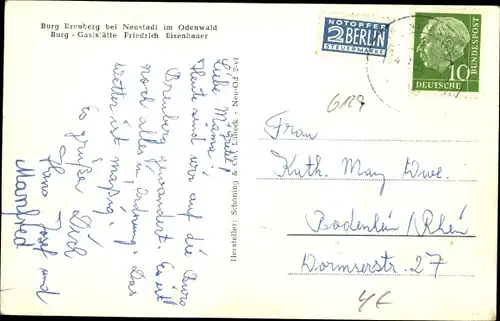 Burg Breuberg bei Neustadt im Odenwald
Burg - Gaststätte Friedrich Eisenhauer
NOTOPFER
2 BERLIN
STEUERMARKE
DEUTSCHE BUNDESPOST
10
6189
Liebe Mama!
Heute sind wir auf die Burg
Breuberg gewandert. Es ist
noch alles in Ordnung. Das
Wetter ist mäßig.
Es grüßen Dich
Hans Josef und
Manfred
Hersteller: Schöning & Co., Lübeck - Neu-Od 241
Frau
Kath. May Wwe.
Bodenheim/Rhein
Wormserstr. 27
4€